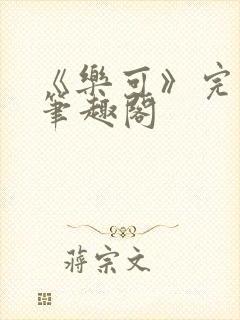 《樂可》完
筆趣閣
蔣宗文